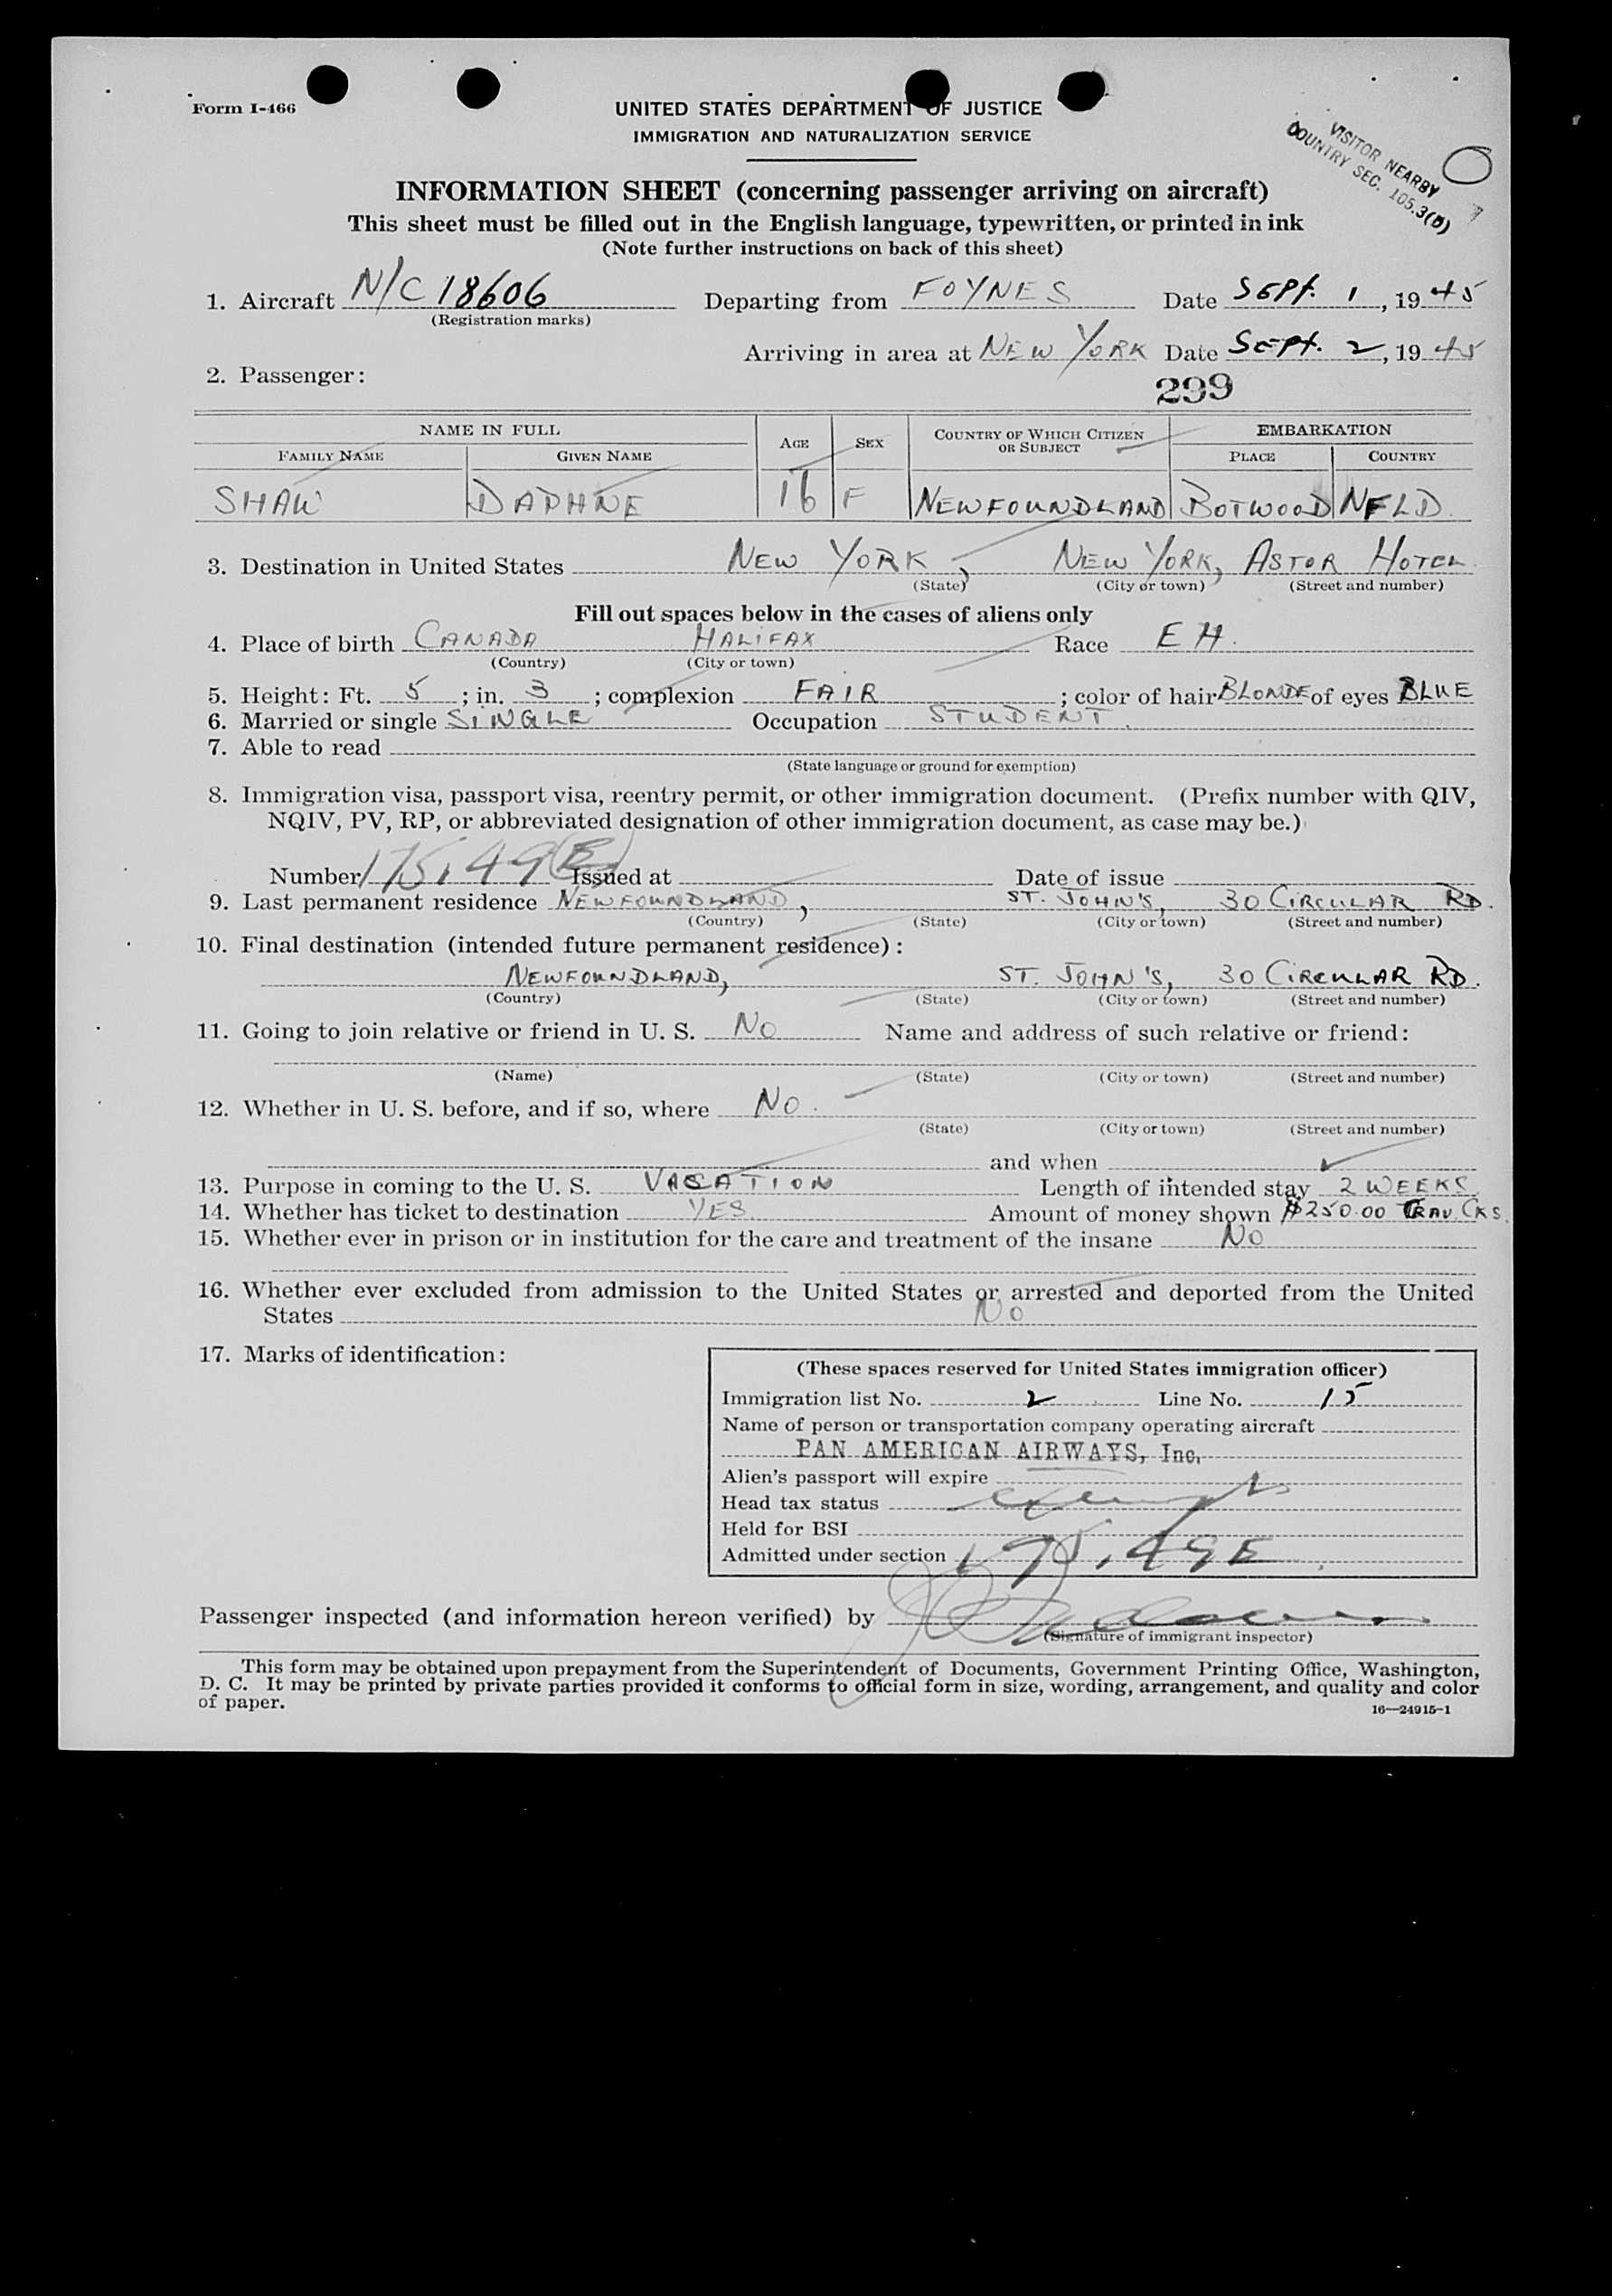 Form I-466
UNITED STATES DEPARTMENT OF JUSTICE
IMMIGRATION AND NATURALIZATION SERVICE
VISITOR NEARBY
COUNTRY SEC. 105.3(b)
INFORMATION SHEET (concerning passenger arriving on aircraft)
This sheet must be filled out in the English language, typewritten, or printed in ink
(Note further instructions on back of this sheet)
1. Aircraft N/C 18606 Departing from FOYNES Date SEPt. 1, 1945
(Registration marks)
Arriving in area at NEW YORK Date SEPt. 2, 1945
2. Passenger:
299
NAME IN FULL AGE SEX COUNTRY OF WHICH CITIZEN OR SUBJECT EMBARKATION
FAMILY NAME GIVEN NAME PLACE COUNTRY
SHAW DAPHNE 16 F NEWFOUNDLAND BOTWOOD NFLD.
3. Destination in United States NEW YORK, NEW YORK, ASTOR HOTEL
(State) (City or town) (Street and number)
Fill out spaces below in the cases of aliens only
4. Place of birth CANADA HALIFAX Race EH.
(Country) (City or town)
5. Height: Ft. 5; in. 3; complexion FAIR; color of hair BLONDE of eyes BLUE
6. Married or single SINGLE Occupation STUDENT.
7. Able to read
(State language or ground for exemption)
8. Immigration visa, passport visa, reentry permit, or other immigration document. (Prefix number with QIV,
NQIV, PV, RP, or abbreviated designation of other immigration document, as case may be.)
Number 175.49(E) Issued at Date of issue
9. Last permanent residence NEWFOUNDLAND, ST. JOHN'S, 30 CIRCULAR RD.
(Country) (State) (City or town) (Street and number)
10. Final destination (intended future permanent residence):
NEWFOUNDLAND, ST. JOHN'S, 30 CIRCULAR RD.
(Country) (State) (City or town) (Street and number)
11. Going to join relative or friend in U. S. NO Name and address of such relative or friend:
(Name) (State) (City or town) (Street and number)
12. Whether in U. S. before, and if so, where NO.
(State) (City or town) (Street and number)
and when
13. Purpose in coming to the U. S. VACATION Length of intended stay 2 WEEKS
14. Whether has ticket to destination YES Amount of money shown $250.00 TRAV. CKS.
15. Whether ever in prison or in institution for the care and treatment of the insane NO
16. Whether ever excluded from admission to the United States or arrested and deported from the United
States NO
17. Marks of identification:
(These spaces reserved for United States immigration officer)
Immigration list No. 2 Line No. 15
Name of person or transportation company operating aircraft
PAN AMERICAN AIRWAYS, Inc.
Alien's passport will expire
Head tax status exempt
Held for BSI
Admitted under section 175.49E
Passenger inspected (and information hereon verified) by
(Signature of immigrant inspector)
This form may be obtained upon prepayment from the Superintendent of Documents, Government Printing Office, Washington,
D. C. It may be printed by private parties provided it conforms to official form in size, wording, arrangement, and quality and color
of paper.
16—24915-1